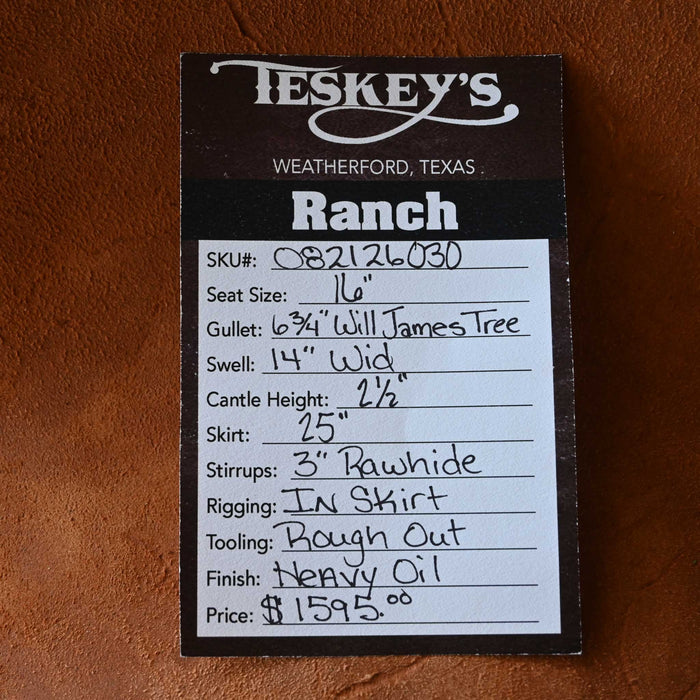 TESKEY'S
WEATHERFORD, TEXAS
Ranch
SKU#: 082126030
Seat Size: 16"
Gullet: 6 3/4" Will James Tree
Swell: 14" Wid
Cantle Height: 2 1/2"
Skirt: 25"
Stirrups: 3" Rawhide
Rigging: IN Skirt
Tooling: Rough Out
Finish: Heavy Oil
Price: $1595.00